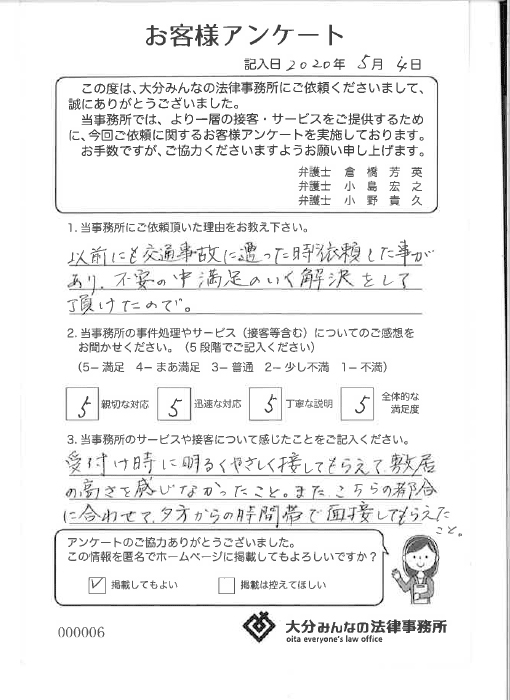 お客様アンケート
記入日 2020年 5月 4日
この度は、大分みんなの法律事務所にご依頼くださいまして、
誠にありがとうございました。
当事務所では、より一層の接客・サービスをご提供するため
に、今回ご依頼に関するお客様アンケートを実施しております。
お手数ですが、ご協力くださいますようお願い申し上げます。
弁護士 倉橋芳英
弁護士 小島宏之
弁護士 小野貴久
1. 当事務所にご依頼頂いた理由をお教え下さい。
以前にも交通事故に遭った時依頼した事が
あり、不安の中満足のいく解決をして
頂けたので。
2. 当事務所の事件処理やサービス（接客等含む）についてのご感想を
お聞かせください。（5段階でご記入ください）
（5－満足 4－まあ満足 3－普通 2－少し不満 1－不満）
5 親切な対応 5 迅速な対応 5 丁寧な説明 5 全体的な
満足度
3. 当事務所のサービスや接客について感じたことをご記入ください。
受付け時に明るくやさしく接してもらえて、敷居
の高さを感じなかったこと。また、こちらの都合
に合わせて、夕方からの時間帯で面接してもらえた
こと。
アンケートのご協力ありがとうございました。
この情報を匿名でホームページに掲載してもよろしいですか？
✓ 掲載してもよい □ 掲載は控えてほしい
000006
大分みんなの法律事務所
oita everyone's law office